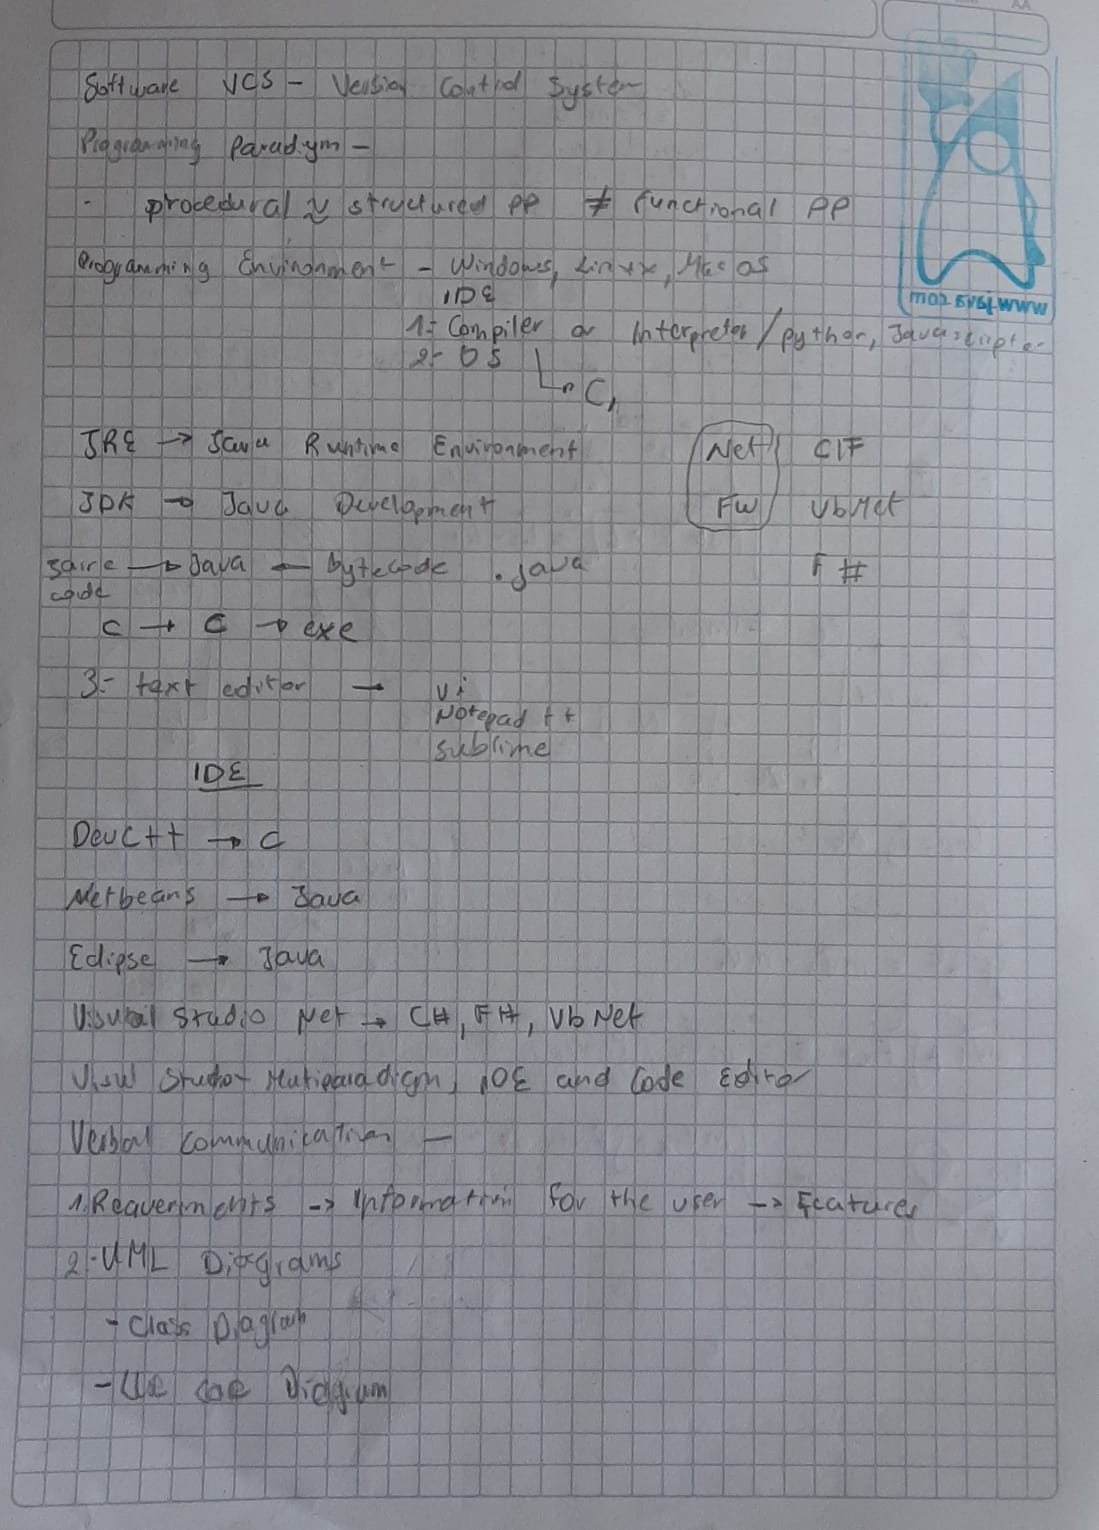 Software VCS - Version Control System
Programming Paradym -
- procedural ≈ structured PP ≠ functional PP
Programming Environment - Windows, Linux, Mac OS
IDE
1- Compiler or Interpreter / python, Javascript
2- OS
C,
JRE → Java Runtime Environment
Net C#
JDK → Java Development
FW VbNet
code → Java ← bytecode .java
F #
C → C → exe
3.- text editor → vi
Notepad ++
sublime
IDE
DevC++ → C
Netbeans → Java
Eclipse → Java
Visual Studio Net → C#, F#, Vb Net
Multiparadigm, IDE and Code Editor
Verbal Communication -
1. Requerments -> Information for the user -> Features
2.- UML Diagrams
- Class Diagram
- Use Case Diagram
www.java.com